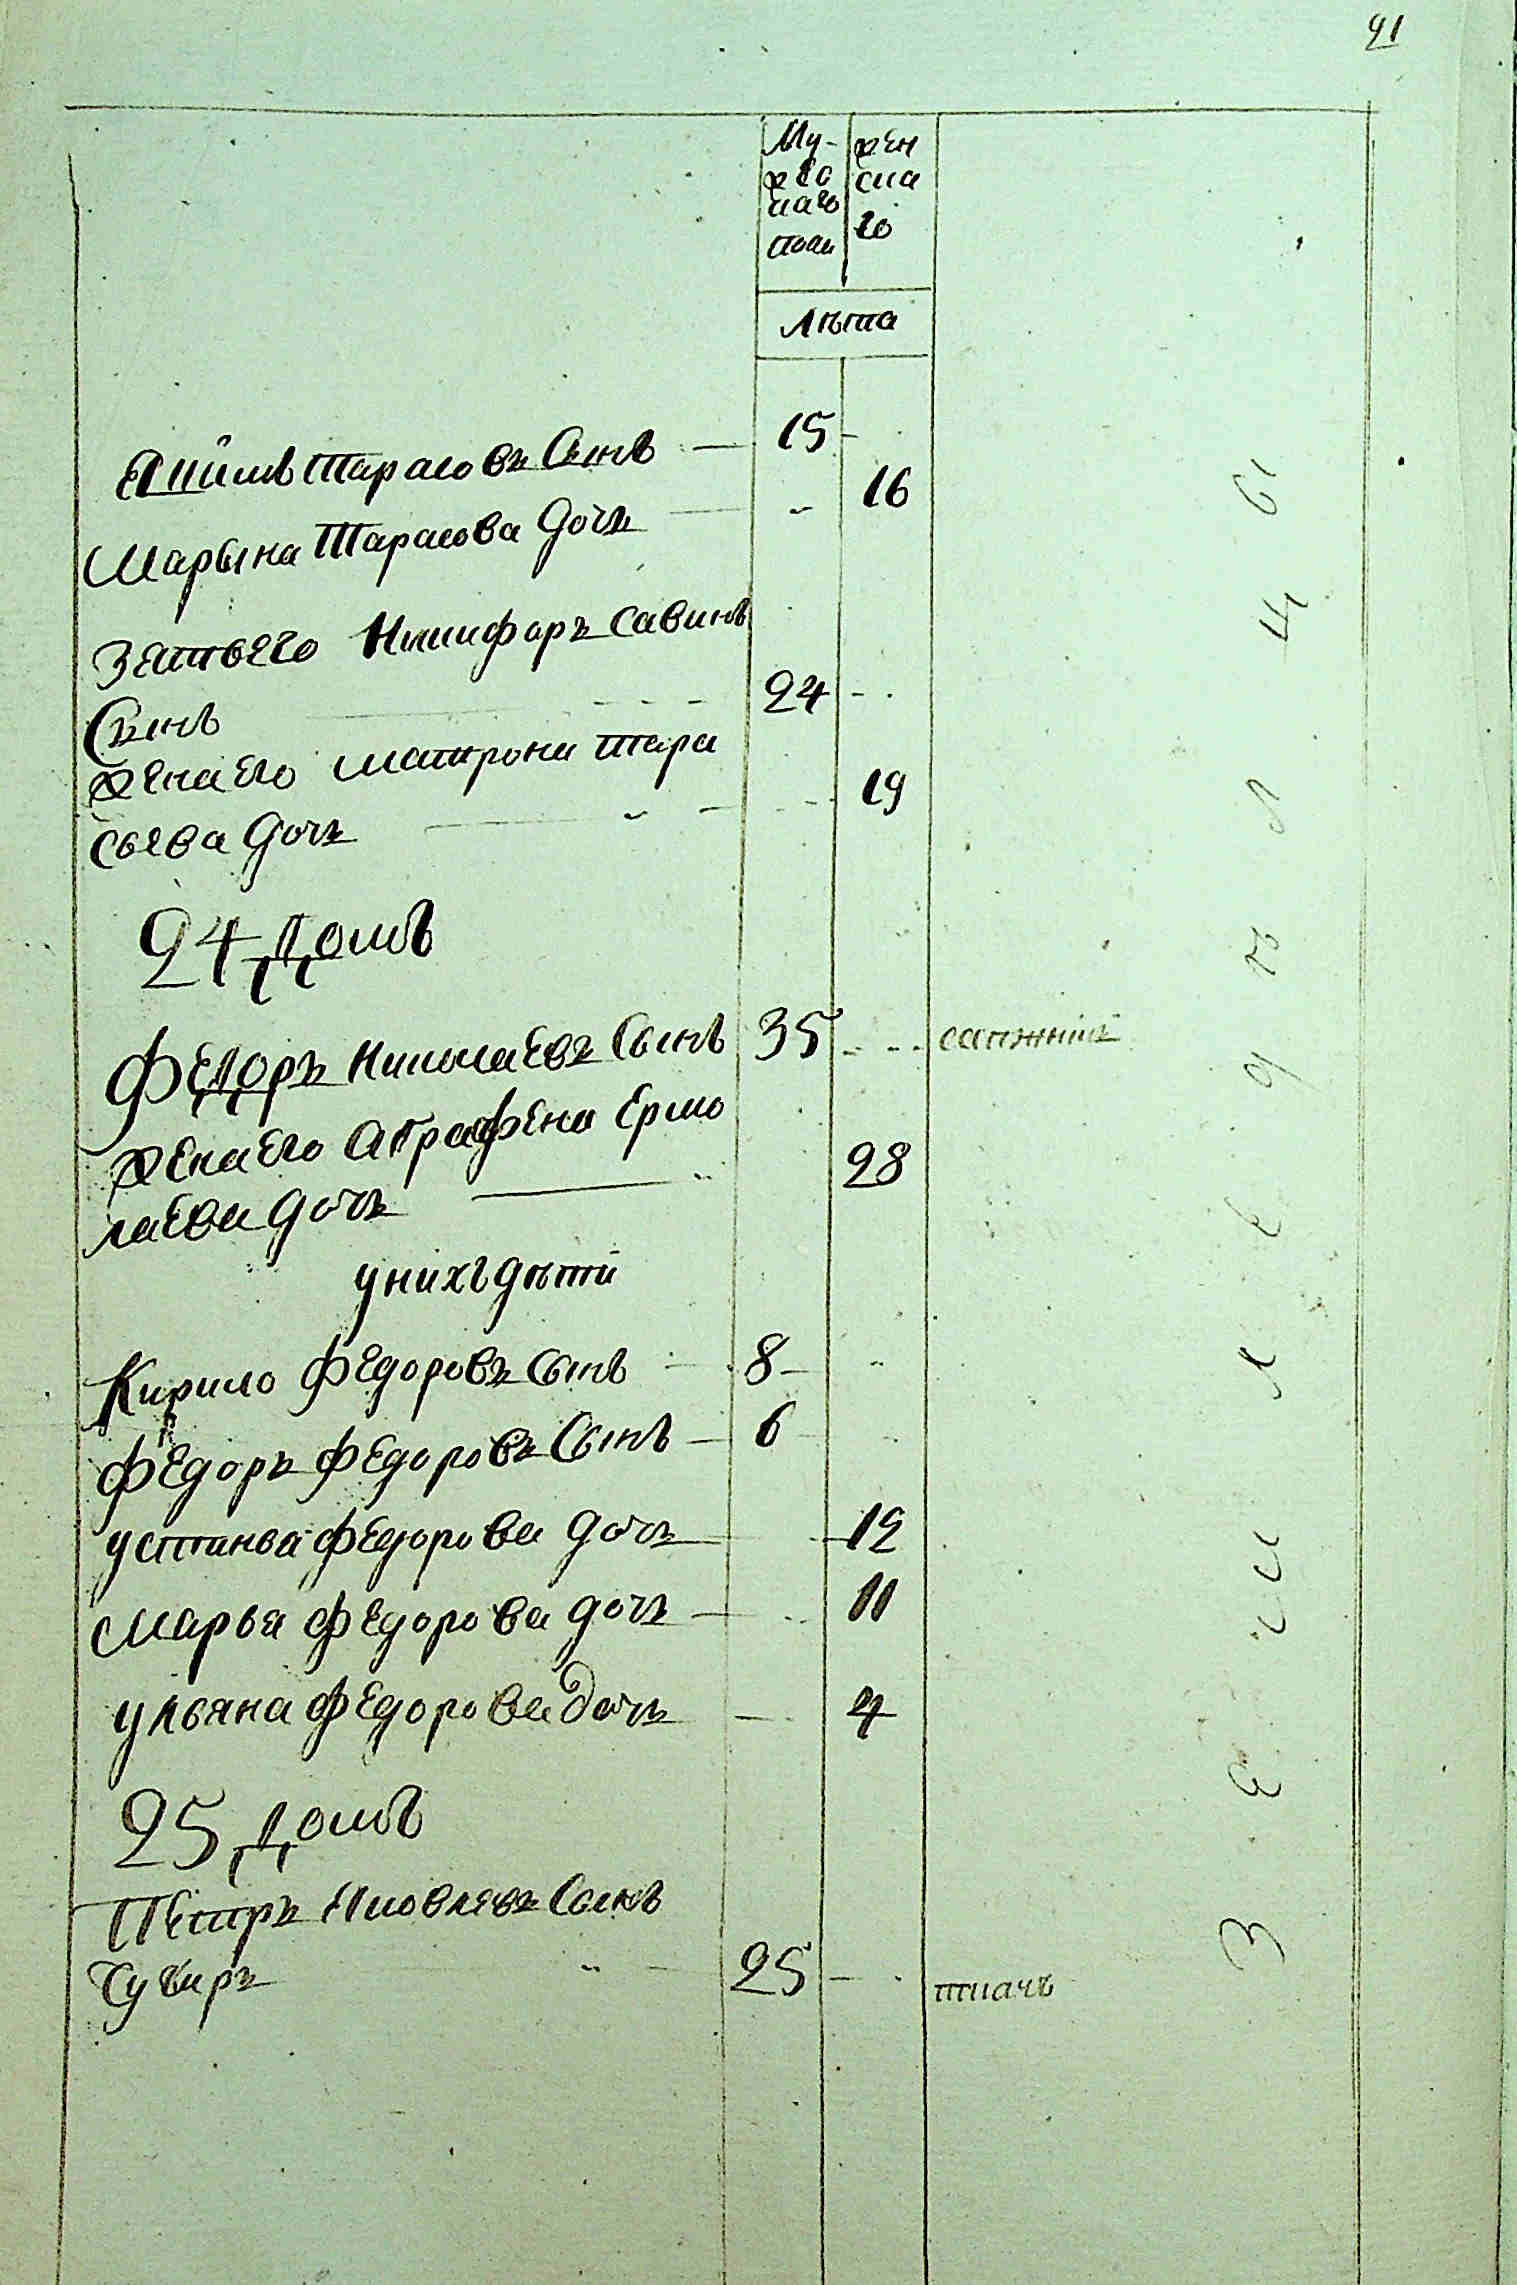 91
Му- жен
жеска ска
наго го
полъ
Лѣта
Якимъ Тарасовъ Сынъ — 15 -
Марына Тарасова дочъ — „ 16
Зятьего Никифоръ савинъ
Сынъ 24 -
жена его матрона тара
сьева дочъ „ 19
24 домъ
Федоръ николаевъ Сынъ 35 сапжникъ
жена его аграфена ермо
лаева дочъ 28
унихъ дѣти
Кирило федоровъ сынъ 8
федоръ федоровъ Сынъ 6
устинья федорова дочъ 12
марья федорова дочъ 11
ульяна федорова дочъ 4
25 домъ
Петръ Яковлевъ Сынъ
25 ткачъ
Земледѣлцы